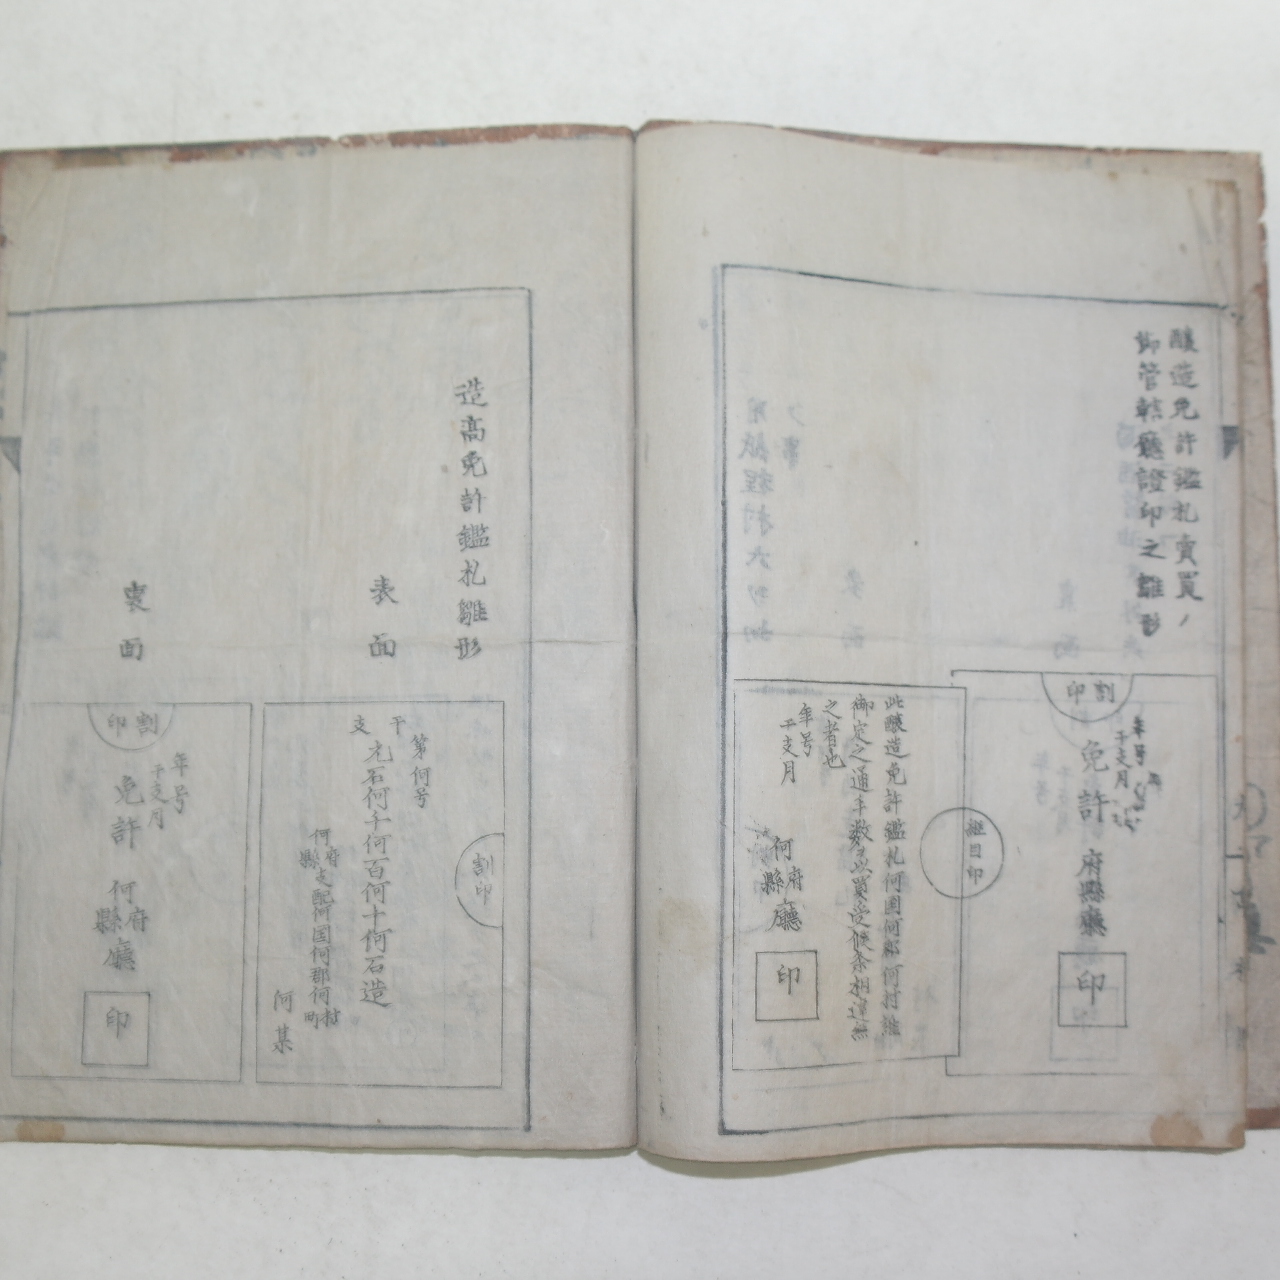 醸造免許鑑札賣買ノ
節管轄廳證印之雛形
割印
年号
干支月
免許
府縣廳
印
継目印
此醸造免許鑑札何国何郡何村誰
御定之通年数ヲ以買受候条相違無
之者也
年号
干支月
何
府
縣
廳
印
造高免許鑑札雛形
表面
第何号
干支
元石何千何百何十何石造
何
府
縣
支配何国何郡何
村
町
何某
割印
裏面
割印
年号
干支月
免許
何
府
縣
廳
印